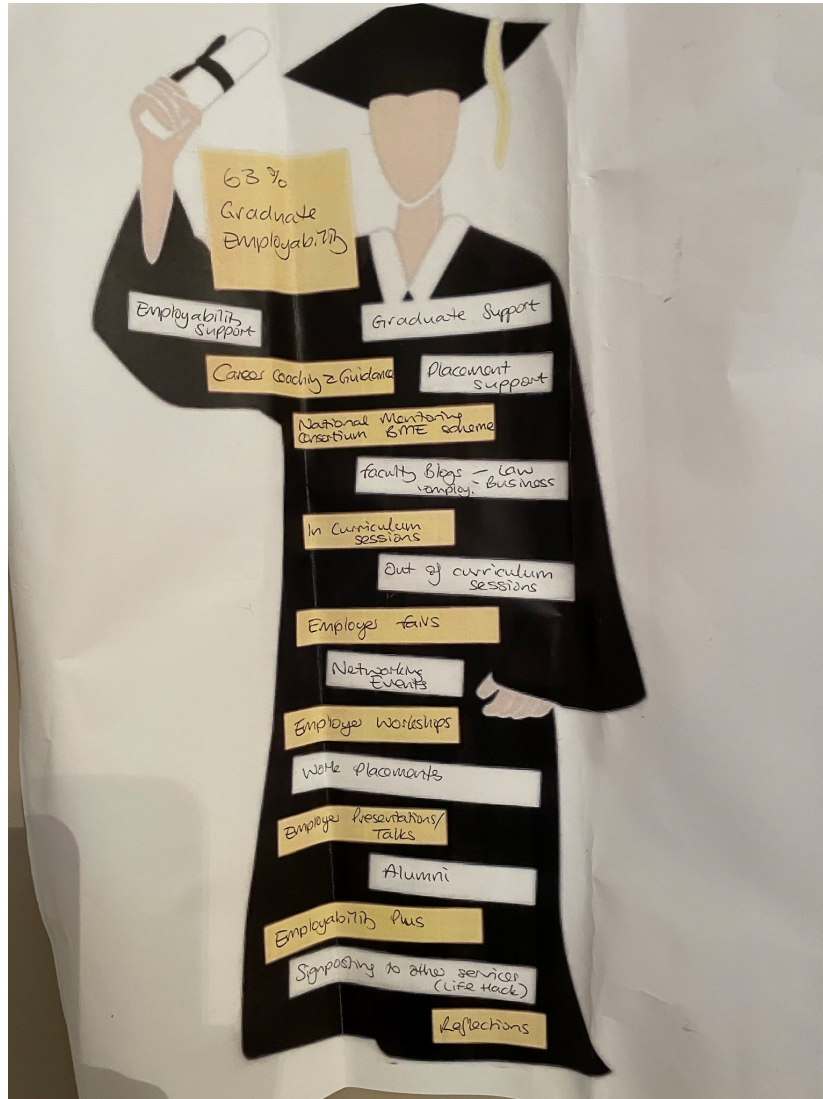 63 %
Graduate
Employability
Employability
Support
Graduate Support
Career Coaching & Guidance
Placement
support
National Mentoring
Consortium BME scheme
Faculty Blogs – Law
employ. – Business
In Curriculum
sessions
Out of curriculum
sessions
Employer fairs
Networking
Events
Employer Workshops
Work Placements
Employer Presentations/
Talks
Alumni
Employability Plus
Signposting to other services
(Life Hack)
Reflections